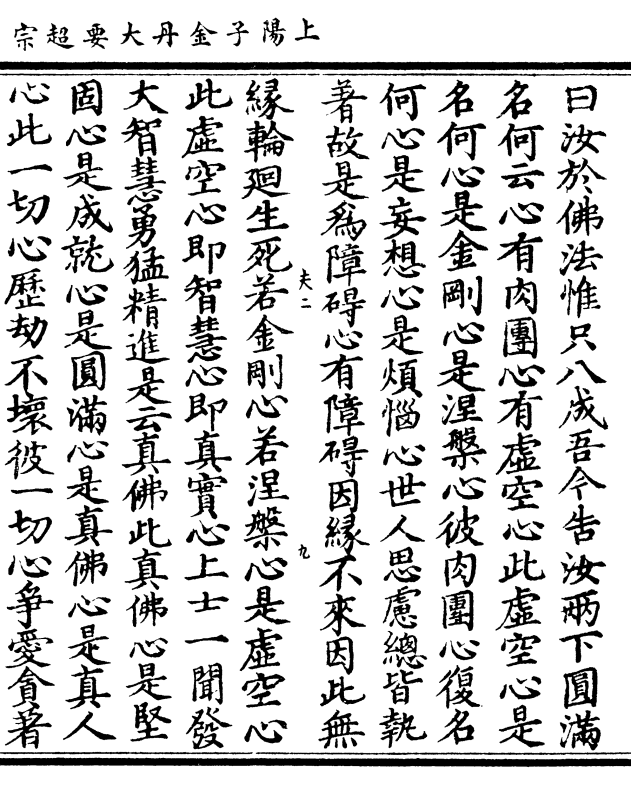 上陽子金丹大要超宗
曰汝於佛法惟只八成吾今告汝兩下圓滿
名何云心有肉團心有虛空心此虛空心是
名何心是金剛心是涅槃心彼肉團心復名
何心是妄想心是煩惱心世人思慮總皆執
著故是爲障碍心有障碍因緣不來因此無
緣輪廻生死若金剛心若涅槃心是虛空心
夫二
九
此虛空心即智慧心即真實心上士一聞發
大智慧勇猛精進是云真佛此真佛心是堅
固心是成就心是圓滿心是真佛心是真人
心此一切心歷劫不壞彼一切心爭愛貪著